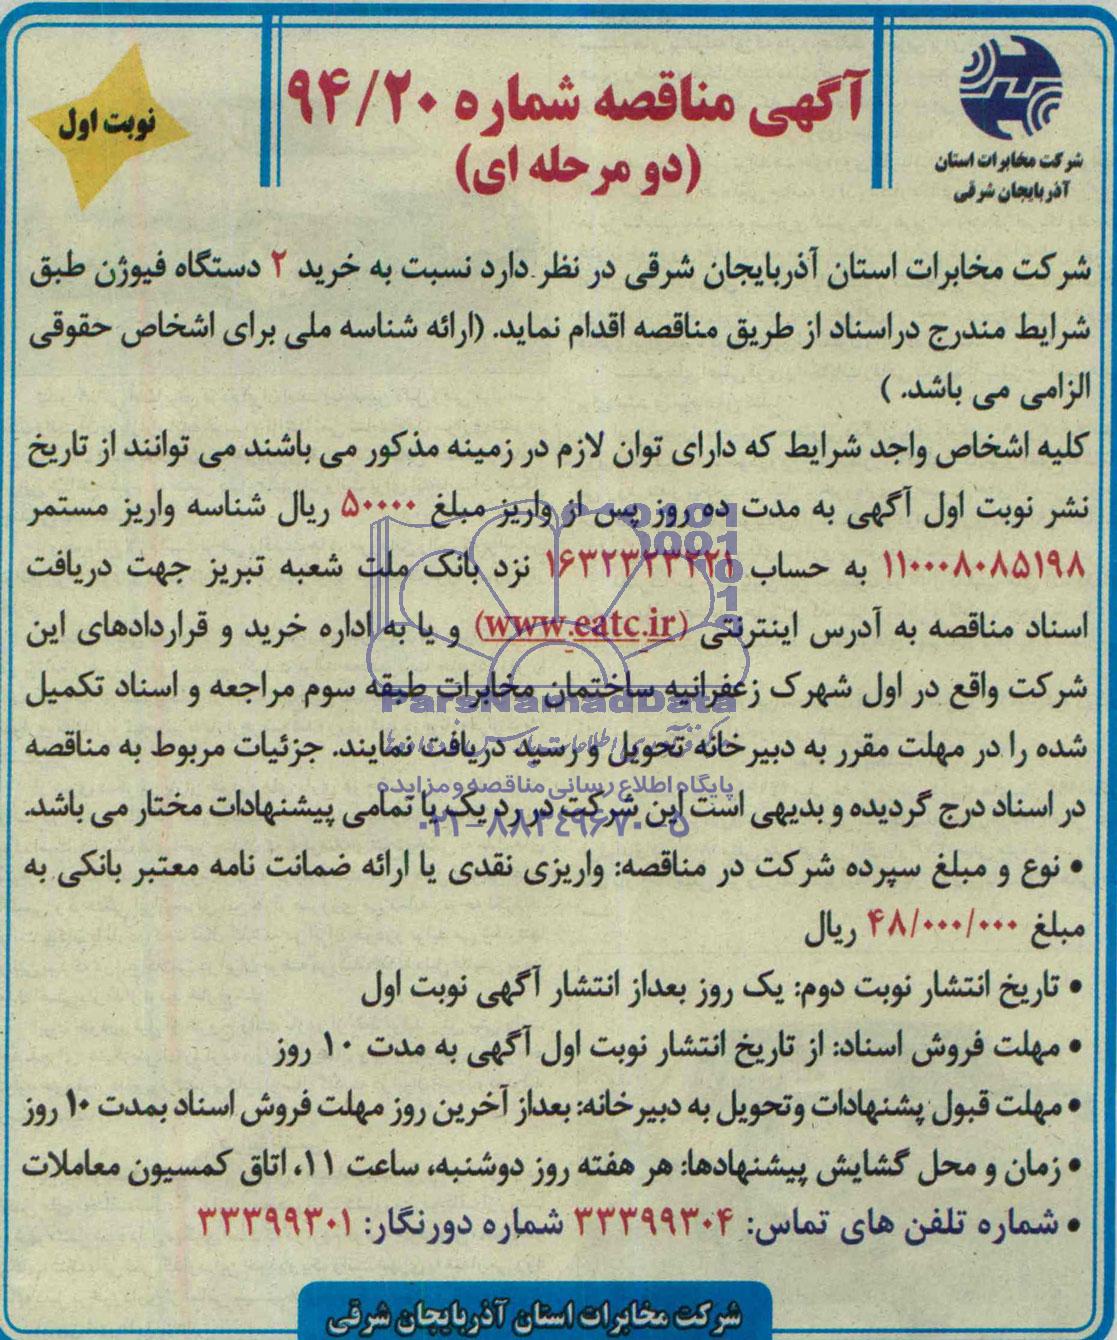 شرکت مخابرات استان
آذربایجان شرقی
آگهی مناقصه شماره ۹۴/۲۰
(دو مرحله ای)
نوبت اول
شرکت مخابرات استان آذربایجان شرقی در نظر دارد نسبت به خرید ۲ دستگاه فیوژن طبق
شرایط مندرج دراسناد از طریق مناقصه اقدام نماید. (ارائه شناسه ملی برای اشخاص حقوقی
الزامی می باشد. )
کلیه اشخاص واجد شرایط که دارای توان لازم در زمینه مذکور می باشند می توانند از تاریخ
نشر نوبت اول آگهی به مدت ده روز پس از واریز مبلغ ۵۰۰۰۰ ریال شناسه واریز مستمر
۱۱۰۰۰۸۰۸۵۱۹۸ به حساب ۱۶۳۲۳۲۳۲۲۱ نزد بانک ملت شعبه تبریز جهت دریافت
اسناد مناقصه به آدرس اینترنتی (www.eatc.ir) و یا به اداره خرید و قراردادهای این
شرکت واقع در اول شهرک زعفرانیه ساختمان مخابرات طبقه سوم مراجعه و اسناد تکمیل
شده را در مهلت مقرر به دبیرخانه تحویل و رسید دریافت نمایند. جزئیات مربوط به مناقصه
در اسناد درج گردیده و بدیهی است این شرکت در رد یک یا تمامی پیشنهادات مختار می باشد.
• نوع و مبلغ سپرده شرکت در مناقصه: واریزی نقدی یا ارائه ضمانت نامه معتبر بانکی به
مبلغ ۴۸/۰۰۰/۰۰۰ ریال
• تاریخ انتشار نوبت دوم: یک روز بعداز انتشار آگهی نوبت اول
• مهلت فروش اسناد: از تاریخ انتشار نوبت اول آگهی به مدت ۱۰ روز
• مهلت قبول پشنهادات وتحویل به دبیرخانه: بعداز آخرین روز مهلت فروش اسناد بمدت ۱۰ روز
• زمان و محل گشایش پیشنهادها: هر هفته روز دوشنبه، ساعت ۱۱، اتاق کمسیون معاملات
• شماره تلفن های تماس: ۳۳۳۹۹۳۰۴ شماره دورنگار: ۳۳۳۹۹۳۰۱
شرکت مخابرات استان آذربایجان شرقی
ParsNamadData
پایگاه اطلاع رسانی مناقصه و مزایده
۰۲۱-۸۸۳۴۹۶۷۰-۵